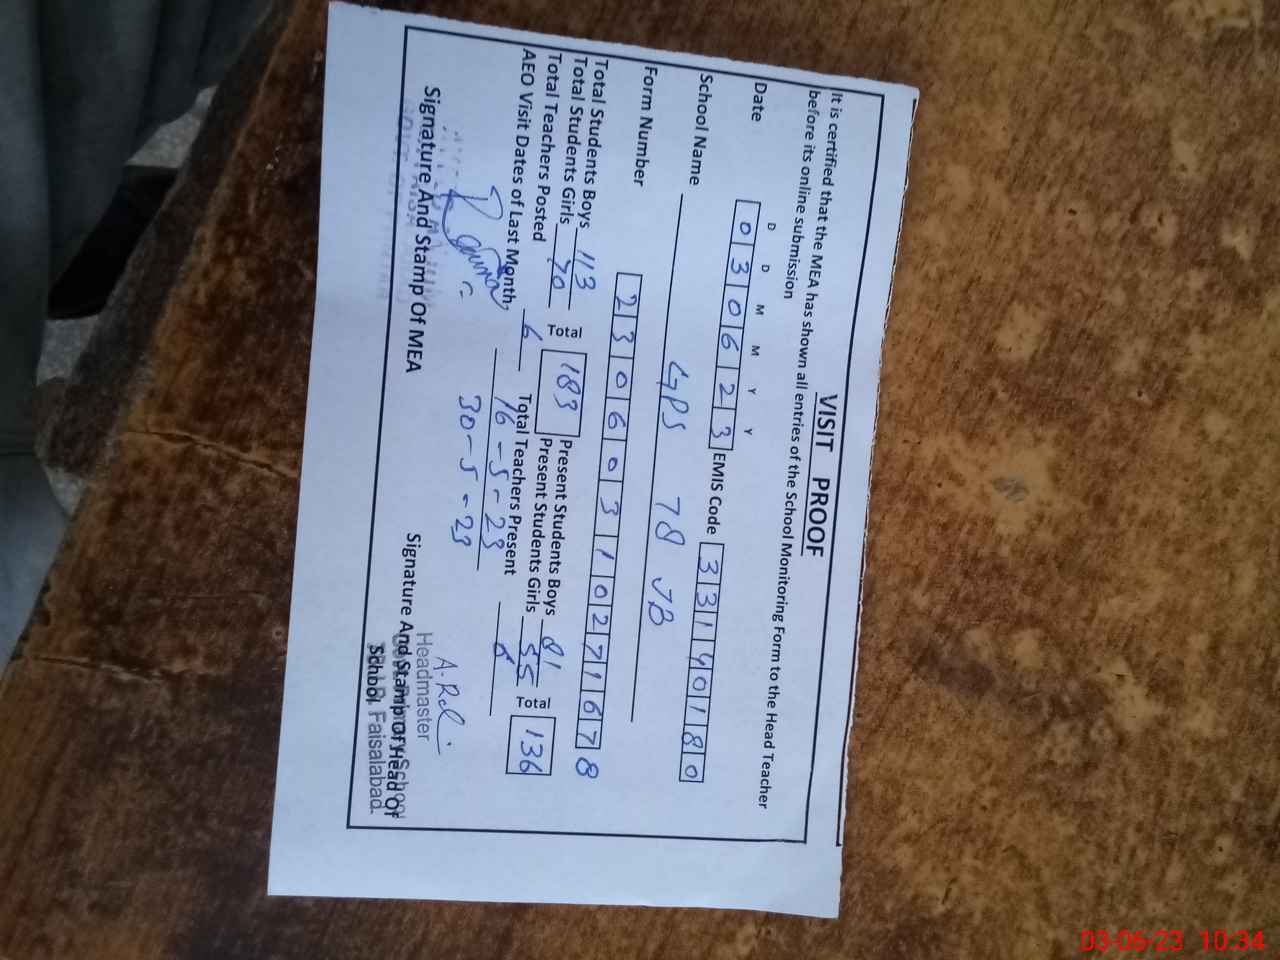 VISIT PROOF
It is certified that the MEA has shown all entries of the School Monitoring Form to the Head Teacher
before its online submission
D D M M Y Y
Date 030623 EMIS Code 33140180
School Name GPS 78 JB
Form Number 23060310271678
Total Students Boys 113 Present Students Boys 81
Total Students Girls 70 Total 183 Present Students Girls 55 Total 136
Total Teachers Posted 6 Total Teachers Present 6
AEO Visit Dates of Last Month, 16-5-23
30-5-23
Headmaster
Signature And Stamp Of MEA Signature And Stamp Of Head Of
School
Faisalabad.
03-06-23 10:34